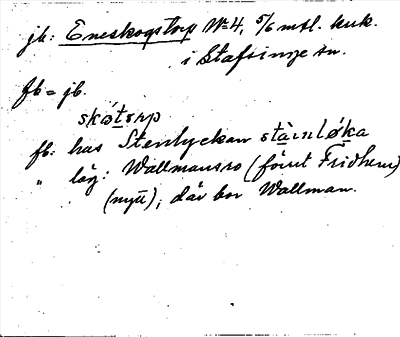 jb: Eneskogstorp No 4, 5/6 mtl. kuk.
i Stafsinge sn.
fb = jb.
skòtɛrp
fb: has Stenlyckan stàinløka
" läg: Wallmansro (förut Fridhem)
(nytt), där bor Wallman.